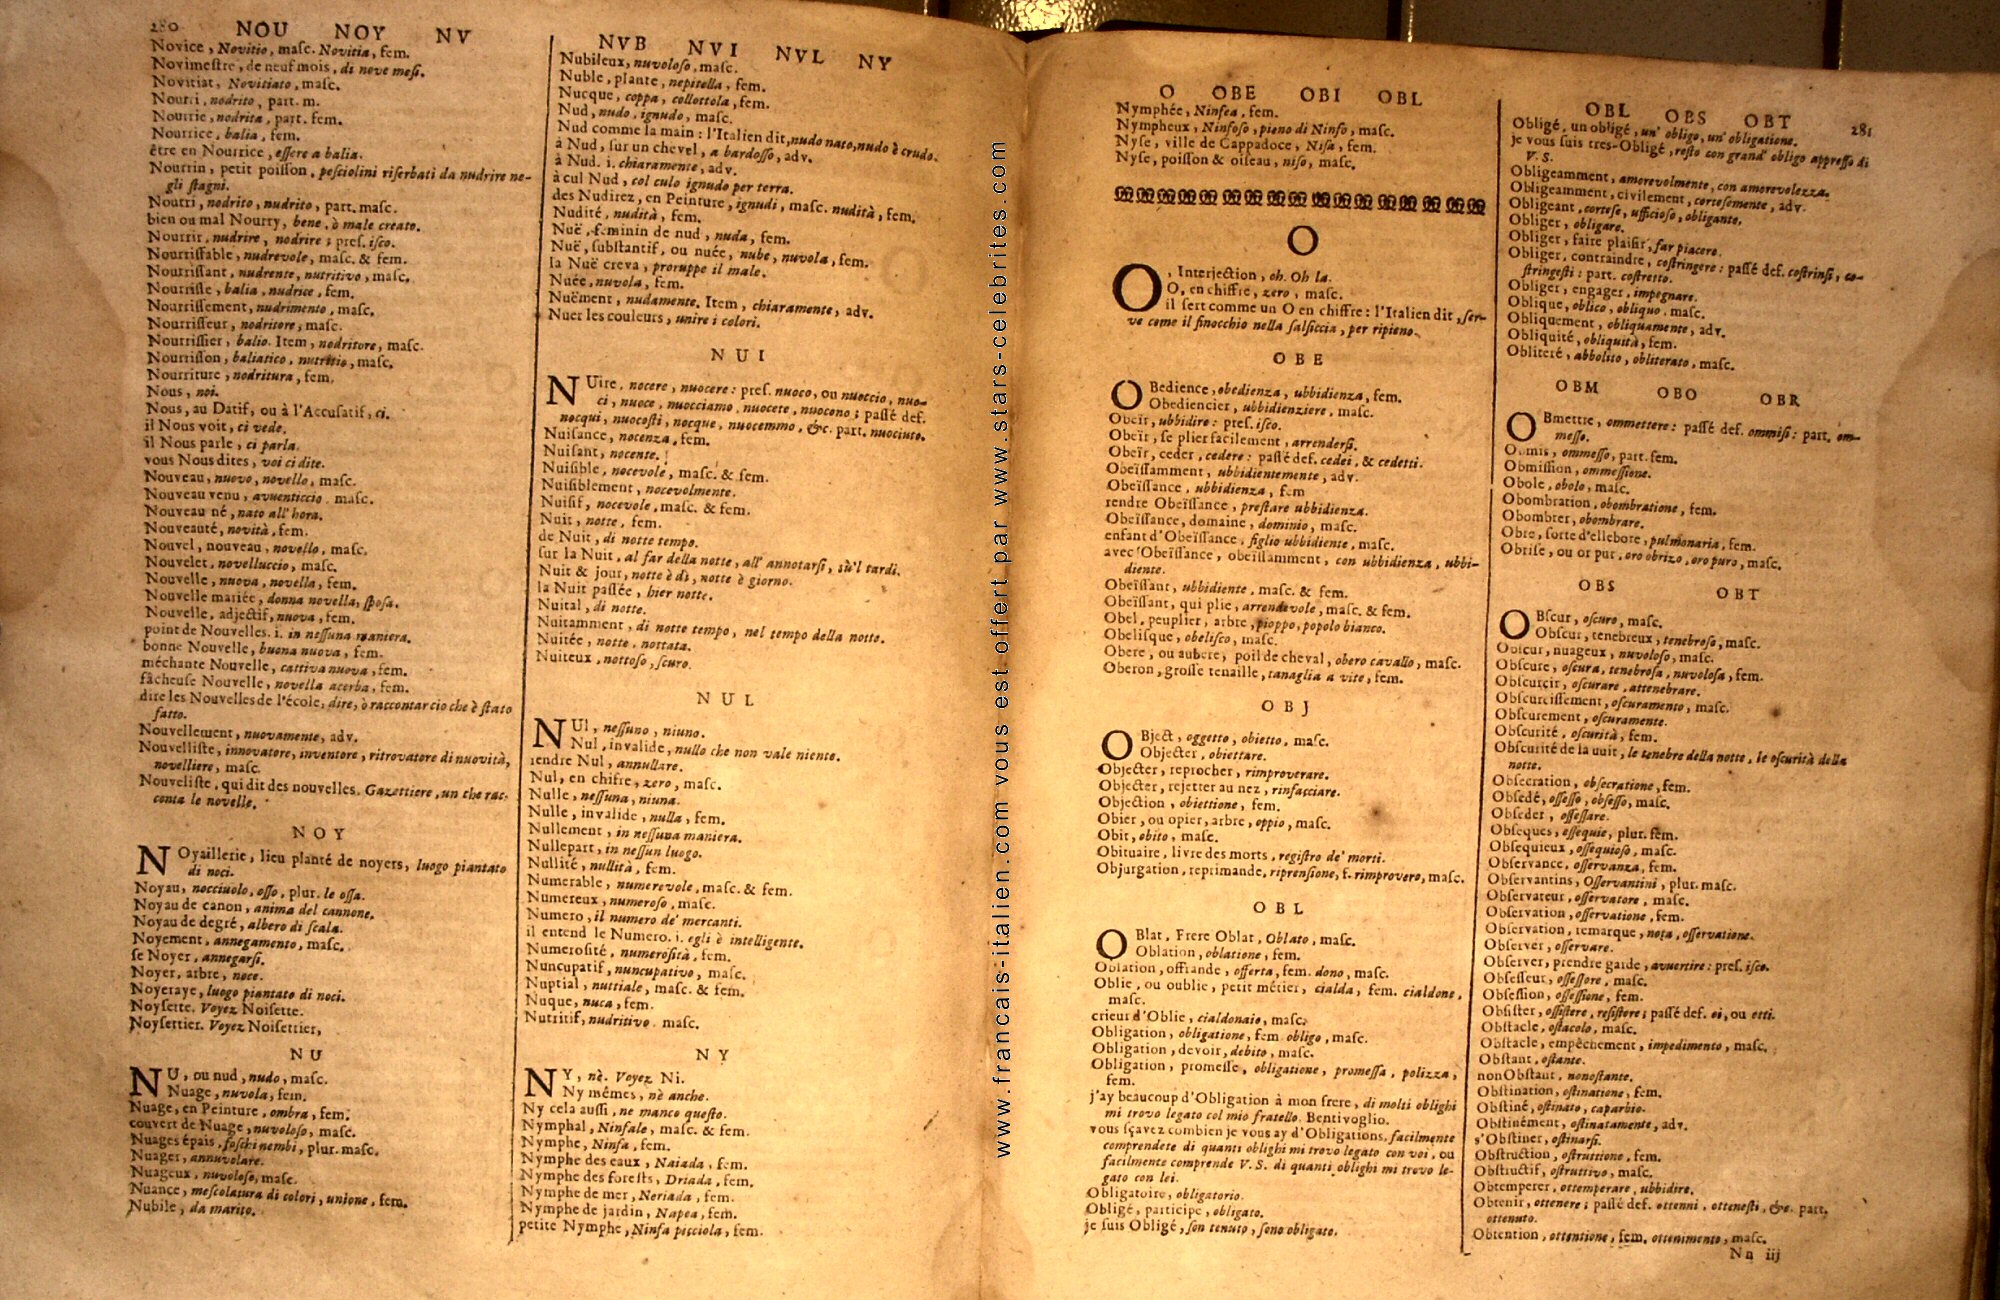 280 NOU NOY NV
Novice, Novitio, masc. Novitia, fem.
Novimestre, de neuf mois, di nove mesi.
Novitiat, Novitiato, masc.
Nourri, nodrito, part. m.
Nourrie, nodrita, part. fem.
Nourrice, balia, fem.
être en Nourrice, essere a balia.
Nourrin, petit poisson, pesciolini riserbati da nudrire ne-
gli stagni.
Noutri, nodrito, nudrito, part. masc.
bien ou mal Nourry, bene, ò male creato.
Nourrir, nudrire, nodrire; pres. isco.
Nourrissable, nudrevole, masc. & fem.
Nourrissant, nudrente, nutritivo, masc.
Nourrisse, balia, nudrice, fem.
Nourrissement, nudrimento, masc.
Nourrisseur, nodritore, masc.
Nourrissier, balio. Item, nodritore, masc.
Nourrisson, baliatico, nutritio, masc.
Nourriture, nodritura, fem.
Nous, noi.
Nous, au Datif, ou à l'Accusatif, ci.
il Nous voit, ci vede.
il Nous parle, ci parla.
vous Nous dites, voi ci dite.
Nouveau, nuovo, novello, masc.
Nouveau venu, avuenticcio. masc.
Nouveau né, nato all' hora.
Nouveauté, novità, fem.
Nouvel, nouveau, novello, masc.
Nouvelet, novelluccio, masc.
Nouvelle, nuova, novella, fem.
Nouvelle mariée, donna novella, sposa.
Nouvelle, adjectif, nuova, fem.
point de Nouvelles. i. in nessuna maniera.
bonne Nouvelle, buona nuova, fem.
méchante Nouvelle, cattiva nuova, fem.
fâcheuse Nouvelle, novella acerba, fem.
dire les Nouvelles de l'école, dire, ò raccontar cio che è stato
fatto.
Nouvellement, nuovamente, adv.
Nouvelliste, innovatore, inventore, ritrovatore di nuovità,
novelliere, masc.
Nouveliste, qui dit des nouvelles. Gazettiere, un che rac-
conta le novelle.
NOY
NOyaillerie, lieu planté de noyers, luogo piantato
di noci.
Noyau, nocciuolo, osso, plur. le ossa.
Noyau de canon, anima del cannone.
Noyau de degré, albero di scala.
Noyement, annegamento, masc.
se Noyer, annegarsi.
Noyer, arbre, noce.
Noyeraye, luogo piantato di noci.
Noysette. Voyez Noisette.
Noysettier. Voyez Noisettier,
NU
NU, ou nud, nudo, masc.
Nuage, nuvola, fem.
Nuage, en Peinture, ombra, fem.
couvert de Nuage, nuvoloso, masc.
Nuages épais, foschi nembi, plur. masc.
Nuager, annuvolare.
Nuageux, nuvoloso, masc.
Nuance, mescolatura di colori, unione, fem.
Nubile, da marito.
NVB NVI NVL NY
Nubileux, nuvoloso, masc.
Nuble, plante, nepitella, fem.
Nucque, coppa, collottola, fem.
Nud, nudo, ignudo, masc.
Nud comme la main: l'Italien dit, nudo nato, nudo è crudo.
à Nud, sur un chevel, a bardosso, adv.
à Nud. i. chiaramente, adv.
à cul Nud, col culo ignudo per terra.
des Nudirez, en Peinture, ignudi, masc. nudità, fem.
Nudité, nudità, fem.
Nuë, feminin de nud, nuda, fem.
Nuë, substantif, ou nuée, nube, nuvola, fem.
la Nuë creva, proruppe il male.
Nuée, nuvola, fem.
Nuëment, nudamente. Item, chiaramente, adv.
Nuer les couleurs, unire i colori.
NUI
NUire, nocere, nuocere: pres. nuoco, ou nuoccio, nuo-
ci, nuoce, nuocciamo, nuocete, nuocono; passé def.
nocqui, nuocesti, nocque, nuocemmo, &c. part. nuociuto.
Nuisance, nocenza, fem.
Nuisant, nocente.
Nuisible, nocevole, masc. & fem.
Nuisiblement, nocevolmente.
Nuisif, nocevole, masc. & fem.
Nuit, notte, fem.
de Nuit, di notte tempo.
sur la Nuit, al far della notte, all' annotarsi, sù'l tardi.
Nuit & jour, notte è dì, notte è giorno.
la Nuit passée, hier notte.
Nuital, di notte.
Nuitamment, di notte tempo, nel tempo della notte.
Nuitée, notte, nottata.
Nuiteux, nottoso, scuro.
NUL
NUl, nessuno, niuno.
Nul, invalide, nullo che non vale niente.
rendre Nul, annullare.
Nul, en chifre, zero, masc.
Nulle, nessuna, niuna.
Nulle, invalide, nulla, fem.
Nullement, in nessuna maniera.
Nullepart, in nessun luogo.
Nullité, nullità, fem.
Numerable, numerevole, masc. & fem.
Numereux, numeroso, masc.
Numero, il numero de' mercanti.
il entend le Numero. i. egli è intelligente.
Numerosité, numerosità, fem.
Nuncupatif, nuncupativo, masc.
Nuptial, nuttiale, masc. & fem.
Nuque, nuca, fem.
Nutritif, nudritivo. masc.
NY
NY, nè. Voyez Ni.
Ny mêmes, nè anche.
Ny cela aussi, ne manco questo.
Nymphal, Ninfale, masc. & fem.
Nymphe, Ninfa, fem.
Nymphe des eaux, Naiada, fem.
Nymphe des forests, Driada, fem.
Nymphe de mer, Neriada, fem.
Nymphe de jardin, Napea, fem.
petite Nymphe, Ninfa picciola, fem.
www.francais-italien.com vous est offert par www.stars-celebrites.com
O OBE OBI OBL
Nymphée, Ninfea, fem.
Nympheux, Ninfoso, pieno di Ninfo, masc.
Nyse, ville de Cappadoce, Nisa, fem.
Nyse, poisson & oiseau, niso, masc.
O
O, Interjection, oh. Oh la.
O, en chiffre, zero, masc.
il sert comme un O en chiffre: l'Italien dit, ser-
ve come il finocchio nella salsiccia, per ripieno.
OBE
OBedience, obedienza, ubbidienza, fem.
Obediencier, ubbidienziere, masc.
Obeïr, ubbidire: pres. isco.
Obeïr, se plier facilement, arrendersi.
Obeïr, ceder, cedere: passé def. cedei, & cedetti.
Obeïssamment, ubbidientemente, adv.
Obeïssance, ubbidienza, fem
rendre Obeïssance, prestare ubbidienza.
Obeïssance, domaine, dominio, masc.
enfant d'Obeïssance, figlio ubbidiente, masc.
avec Obeïssance, obeïssamment, con ubbidienza, ubbi-
diente.
Obeïssant, ubbidiente, masc. & fem.
Obeïssant, qui plie, arrendevole, masc. & fem.
Obel, peuplier, arbre, pioppo, popolo bianco.
Obelisque, obelisco, masc.
Obere, ou aubere, poil de cheval, obero cavallo, masc.
Oberon, grosse tenaille, tanaglia a vite, fem.
OBJ
OBject, oggetto, obietto, masc.
Objecter, obiettare.
Objecter, reprocher, rimproverare.
Objecter, rejetter au nez, rinfacciare.
Objection, obiettione, fem.
Obier, ou opier, arbre, oppio, masc.
Obit, obito, masc.
Obituaire, livre des morts, registro de' morti.
Objurgation, reprimande, riprensione, f. rimprovero, masc.
OBL
OBlat, Frere Oblat, Oblato, masc.
Oblation, oblatione, fem.
Oblation, offrande, offerta, fem. dono, masc.
Oblie, ou oublie, petit métier, cialda, fem. cialdone,
masc.
crieur d'Oblie, cialdonaio, masc.
Obligation, obligatione, fem obligo, masc.
Obligation, devoir, debito, masc.
Obligation, promesse, obligatione, promessa, polizza,
fem.
j'ay beaucoup d'Obligation à mon frere, di molti oblighi
mi trovo legato col mio fratello. Bentivoglio.
vous sçavez combien je vous ay d'Obligations, facilmente
comprendete di quanti oblighi mi trovo legato con voi, ou
facilmente comprende V. S. di quanti oblighi mi trovo le-
gato con lei.
Obligatoire, obligatorio.
Obligé, participe, obligato.
je suis Obligé, son tenuto, sono obligato.
OBL OBS OBT 281
Obligé, un obligé, un' obligo, un' obligatione.
je vous suis tres-Obligé, resto con grand' obligo appresso di
V. S.
Obligeamment, amorevolmente, con amorevolezza.
Obligeamment, civilement, cortesemente, adv.
Obligeant, cortese, ufficioso, obligante.
Obliger, obligare.
Obliger, faire plaisir, far piacere.
Obliger, contraindre, costringere: passé def. costrinsi, co-
stringesti: part. costretto.
Obliger, engager, impegnare.
Oblique, oblico, obliquo. masc.
Obliquement, obliquamente, adv.
Obliquité, obliquità, fem.
Obliteré, abbolito, obliterato, masc.
OBM OBO OBR
OBmettre, ommettere: passé def. ommisi: part. om-
messo.
Obmis, ommesso, part. fem.
Obmission, ommessione.
Obole, obolo, masc.
Obombration, obombratione, fem.
Obombrer, obombrare.
Obre, sorte d'ellebore, pulmonaria, fem.
Obrise, ou or pur, oro obrizo, oro puro, masc.
OBS OBT
OBscur, oscuro, masc.
Obscur, tenebreux, tenebroso, masc.
Obscur, nuageux, nuvoloso, masc.
Obscure, oscura, tenebrosa, nuvolosa, fem.
Obscurcir, oscurare, attenebrare.
Obscurcissement, oscuramento, masc.
Obscurement, oscuramente.
Obscurité, oscurità, fem.
Obscurité de la nuit, le tenebre della notte, le oscurità della
notte.
Obsecration, obsecratione, fem.
Obsedé, ossesso, obsesso, masc.
Obseder, ossessare.
Obseques, essequie, plur. fem.
Obsequieux, ossequioso, masc.
Observance, osservanza, fem.
Observantins, Osservantini, plur. masc.
Observateur, osservatore, masc.
Observation, osservatione, fem.
Observation, remarque, nota, osservatione.
Observer, osservare.
Observer, prendre garde, avuertire: pres. isco.
Obsesseur, ossessore, masc.
Obsession, ossessione, fem.
Obsister, ossistere, resistere; passé def. ei, ou etti.
Obstacle, ostacolo, masc.
Obstacle, empêchement, impedimento, masc.
Obstant, ostante.
non Obstant, nonostante.
Obstination, ostinatione, fem.
Obstiné, ostinato, caparbio.
Obstinément, ostinatamente, adv.
s'Obstiner, ostinarsi.
Obstruction, ostruttione, fem.
Obstructif, ostruttivo, masc.
Obtemperer, ottemperare, ubbidire.
Obtenir, ottenere; passé def. ottenni, ottenesti, &c. part.
ottenuto.
Obtention, ottentione, fem. ottenimento, masc.
Nn iij